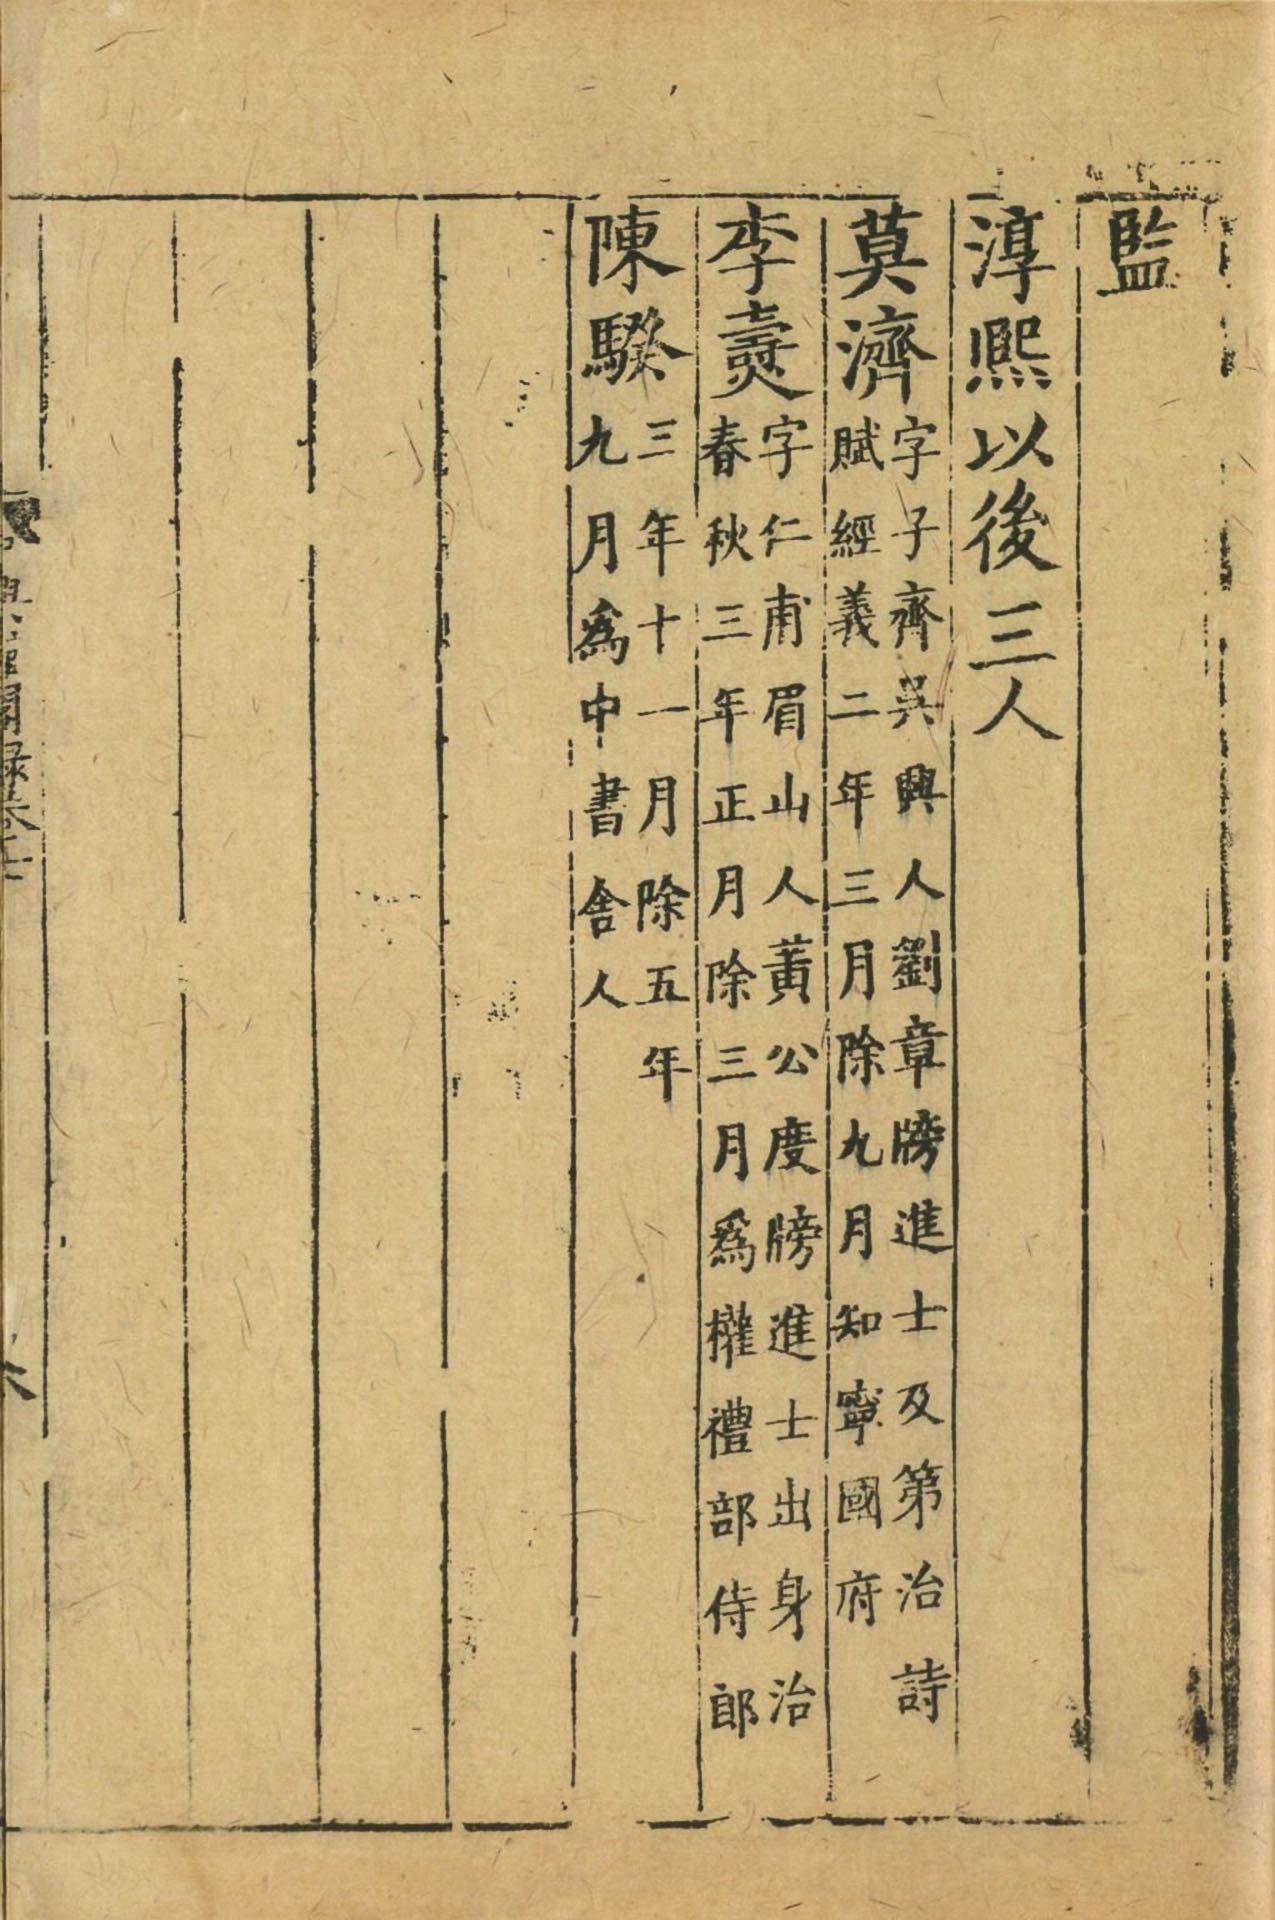 監
淳熙以後三人
莫濟字子齊吳興人劉章牓進士及第治詩
賦經義二年三月除九月知寧國府
李燾字仁甫眉山人黃公度牓進士出身治
春秋三年正月除三月爲權禮部侍郎
陳騤三年十一月除五年
九月爲中書舍人